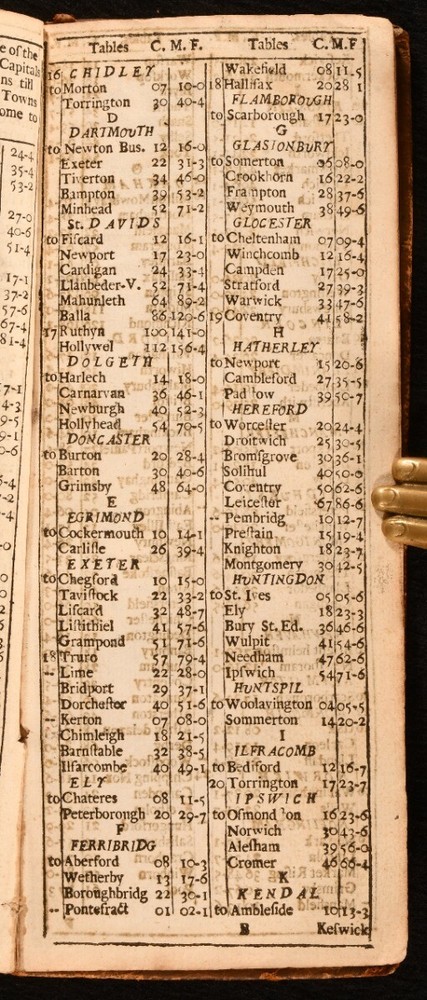 e of the
Capitals
ns till
Towns
ome to
24-4
35-4
53-2
27-0
40-6
51-4
17-1
37-2
57-6
67-4
81-4
7-1
4-3
9-5
9-1
0-6
Tables C. M. F.
16 CHIDLEY
to Morton 07 10-0
Torrington 30 40-4
D
DARTMOUTH
to Newton Bus. 12 16-0
Exeter 22 31-3
Tiverton 34 46-0
Bampton 39 53-2
Minhead 52 71-2
St. DAVIDS
to Fiscard 12 16-1
Newport 17 23-0
Cardigan 24 33-4
Llanbeder-V. 52 71-4
Mahunleth 64 89-2
Balla 86 120-6
17 Ruthyn 100 141-0
Hollywel 112 156-4
DOLGETH
to Harlech 14 18-0
Carnarvan 36 46-1
Newburgh 40 52-3
Hollyhead 54 70-5
DONCASTER
to Burton 20 28-4
Barton 30 40-6
Grimsby 48 64-0
E
EGRIMOND
to Cockermouth 10 14-1
Carlisle 26 39-4
EXETER
to Chegford 10 15-0
Tavistock 22 33-2
Liscard 32 48-7
Listithiel 41 57-6
Grampond 51 71-6
18 Truro 57 79-4
-- Lime 22 28-0
Bridport 29 37-1
Dorchestor 40 51-6
-- Kerton 07 08-0
Chimleigh 18 21-5
Barnstable 32 38-5
Ilfarcombe 40 49-1
ELY
to Chateres 08 11-5
Peterborough 20 29-7
F
FERRIBRIDG
to Aberford 08 10-3
Wetherby 13 17-6
Boroughbridg 22 30-1
-- Pontefract 01 02-1
Tables C. M. F
Wakefield 08 11.5
18 Hallifax 20 28 1
FLAMBOROUGH
to Scarborough 17 23-0
G
GLASIONBURY
to Somerton 06 08-0
Crookhorn 16 22-2
Frampton 28 37-6
Weymouth 38 49-6
GLOCESTER
to Cheltenham 07 09-4
Winchcomb 12 16-4
Campden 17 25-0
Stratford 27 39-3
Warwick 33 47-6
19 Coventry 41 58-2
H
HATHERLEY
to Newport 15 20-6
Cambleford 27 35-5
Pad ow 39 50-7
HEREFORD
to Worcester 20 24-4
Droitwich 25 30-5
Bromsgrove 30 36-1
Solihul 40 50-0
Coventry 50 62-6
Leicestor 67 86-6
-- Pembridg 10 12-7
Prestain 15 19-4
Knighton 18 23-7
Montgomery 30 42-5
HUNTINGDON
to St. Ives 05 05-6
Ely 18 23-3
Bury St. Ed. 36 46-6
Wulpit 41 54-6
Needham 47 62-6
Ipswich 54 71-6
HUNTSPIL
to Woolavington 04 05-5
Sommerton 14 20-2
I
ILFRACOMB
to Bediford 12 16-7
20 Torrington 17 23-7
IPSWICH
to Osmond on 16 23-6
Norwich 30 43-6
Alesham 39 56-0
Cromer 46 66-4
K
KENDAL
to Ambleside 10 13-3
B Keswick